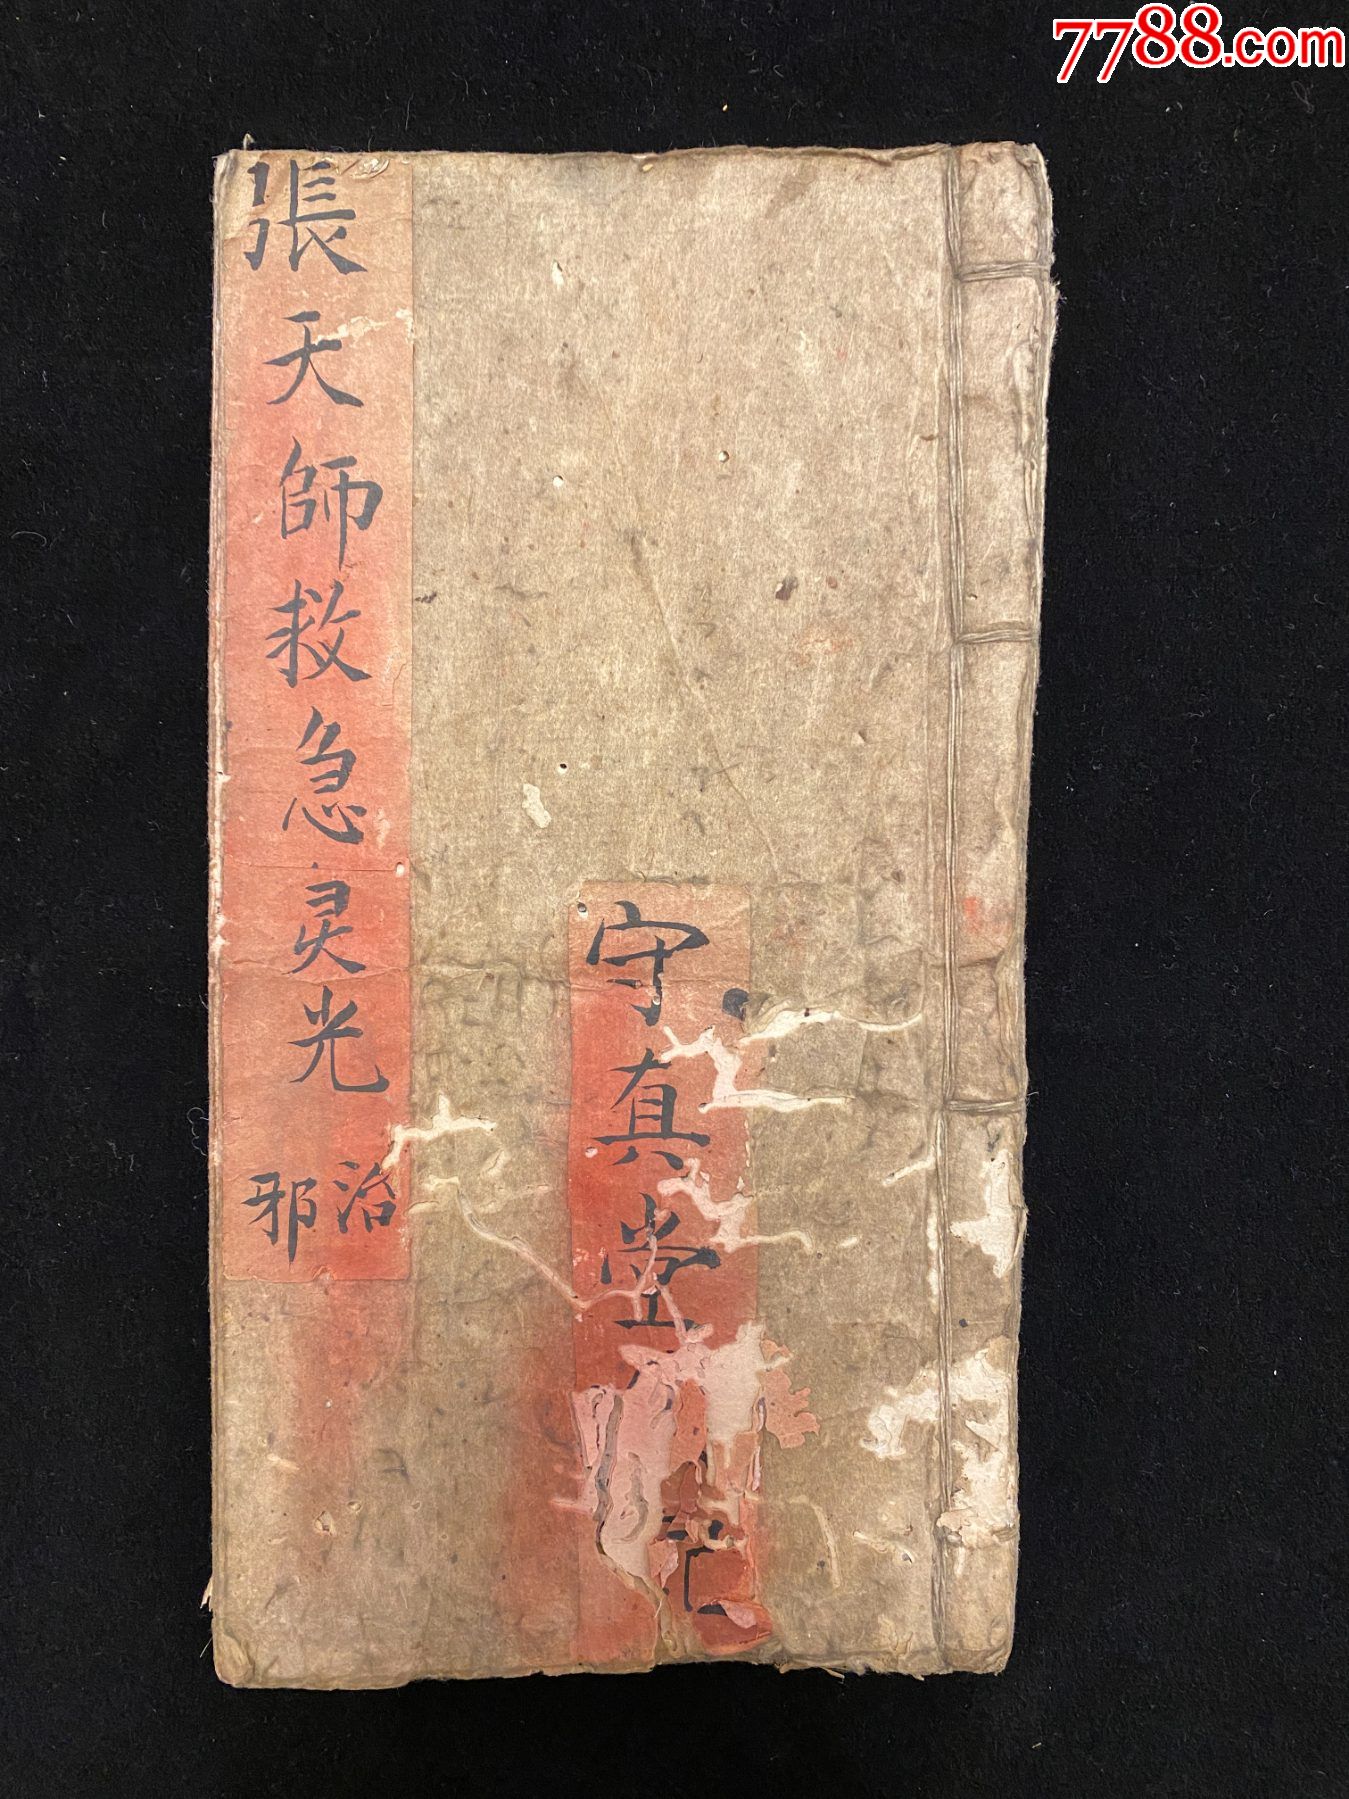 7788.com
張天師救急灵光
治
邪
守真堂